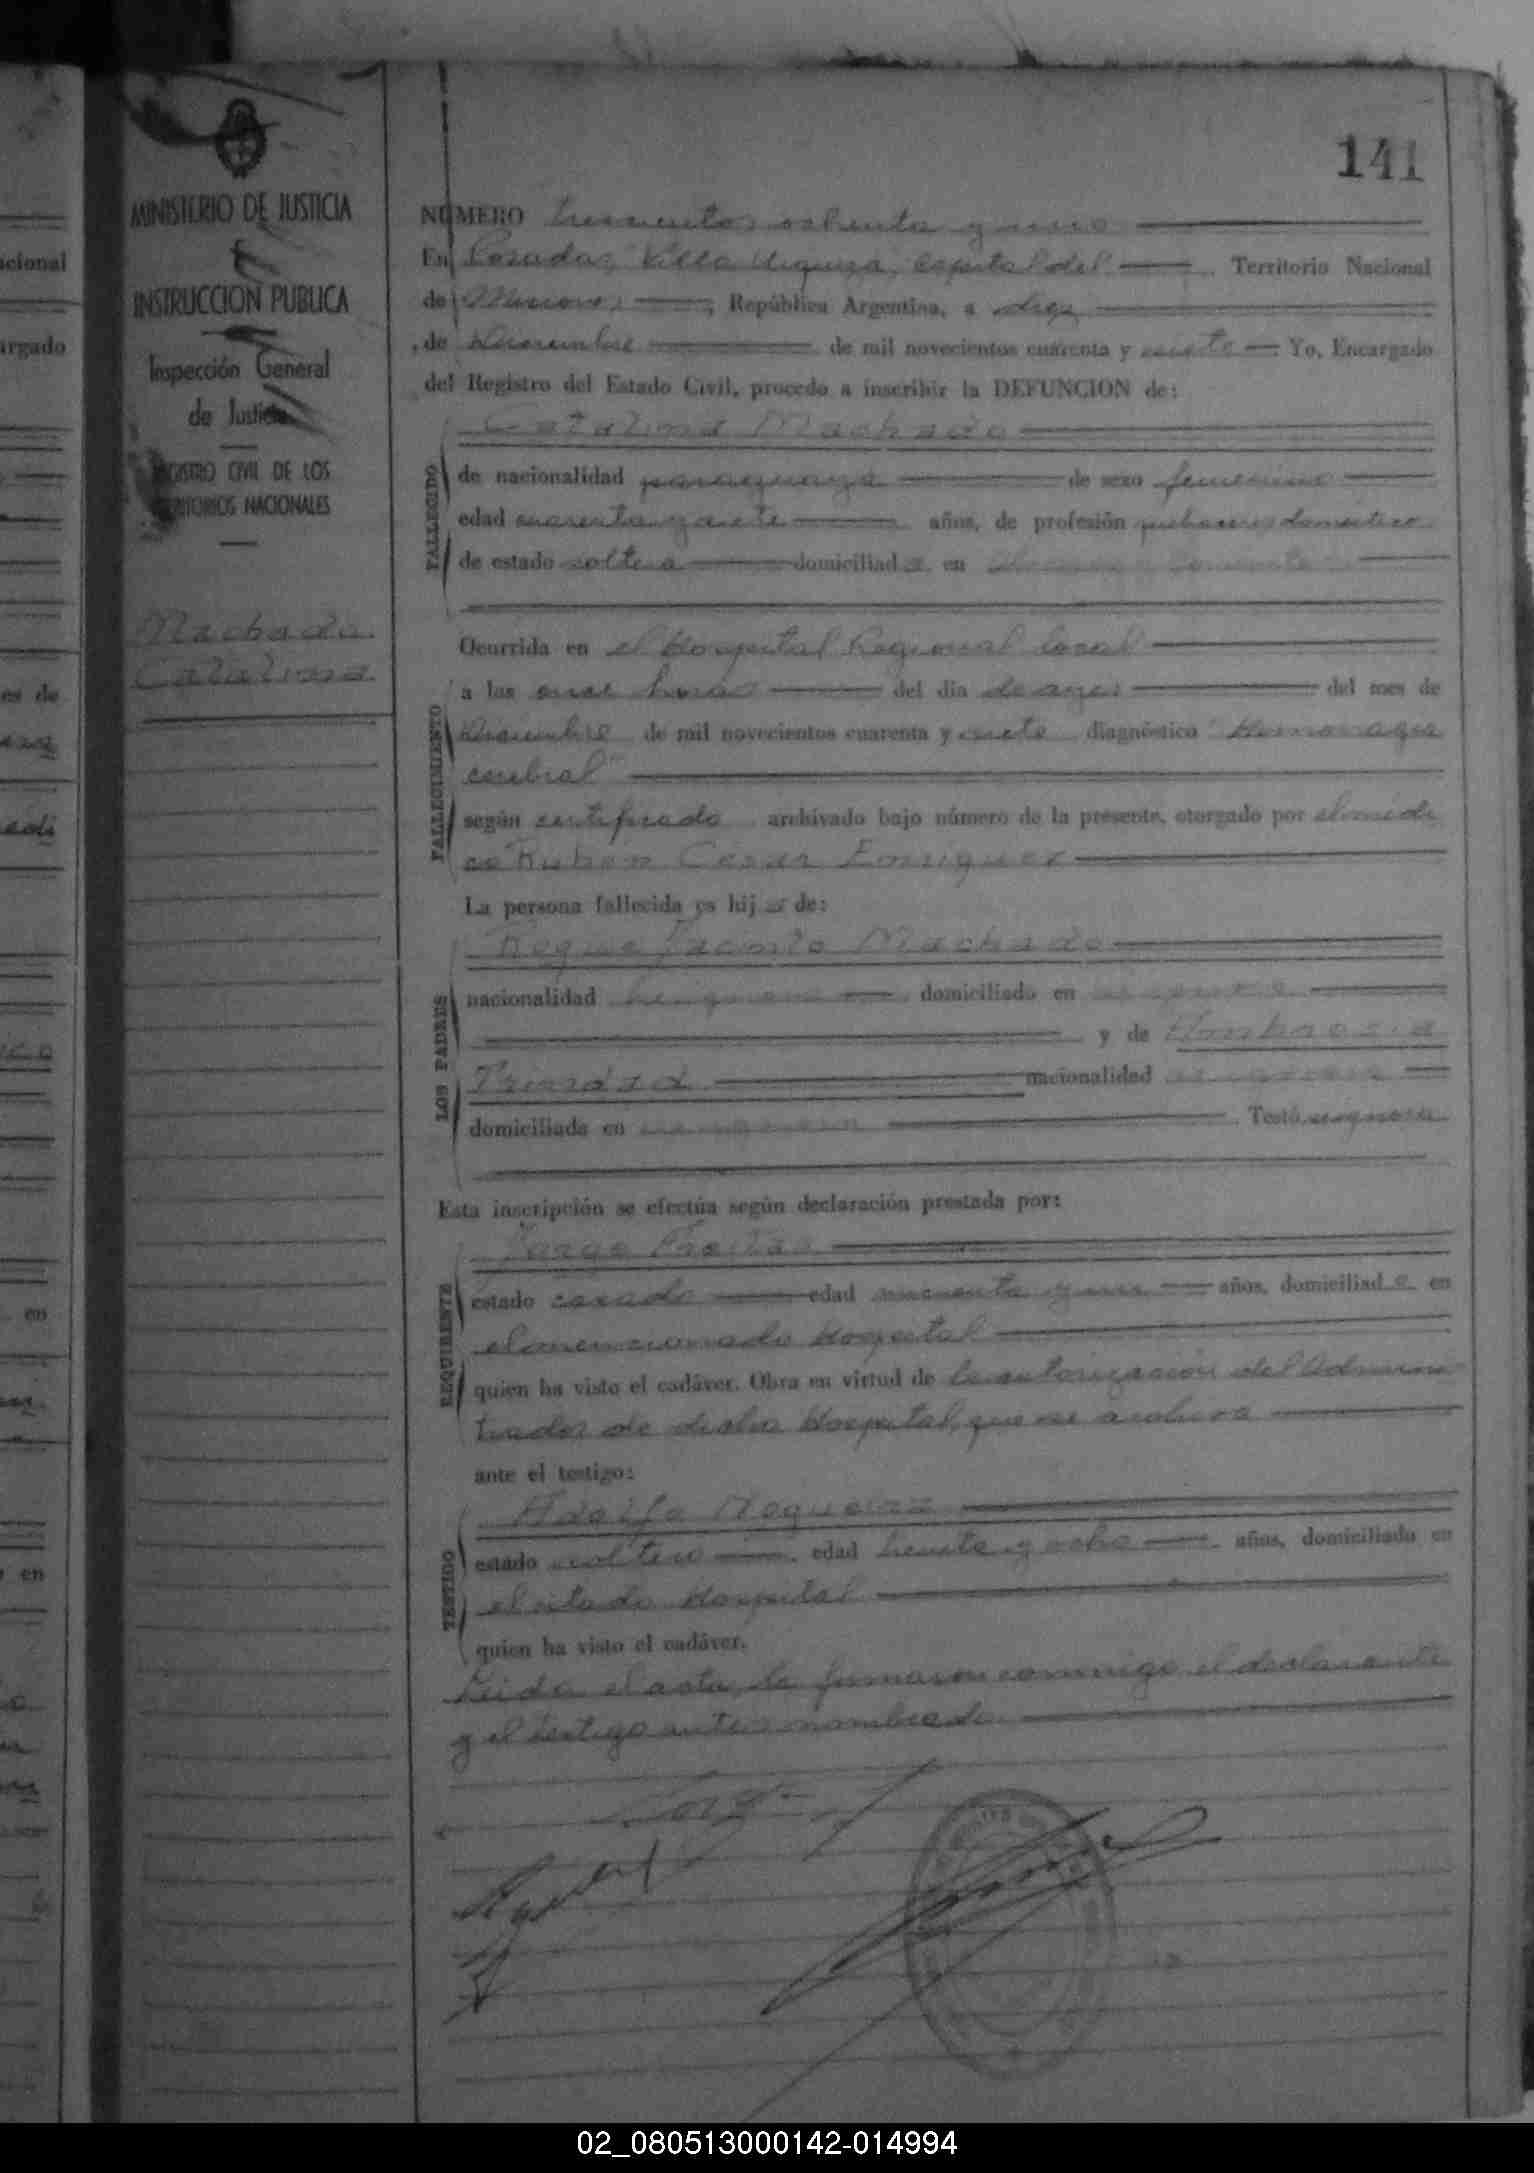 141
MINISTERIO DE JUSTICIA
E
INSTRUCCION PUBLICA
Inspección General
de Justicia
REGISTRO CIVIL DE LOS
TERRITORIOS NACIONALES
Machado
Catalina
NUMERO trescientos ochenta y uno
En Posadas, Villa Urquiza, Capital del Territorio Nacional
de Misiones, República Argentina, a diez
de Diciembre de mil novecientos cuarenta y siete Yo, Encargado
del Registro del Estado Civil, procedo a inscribir la DEFUNCION de:
Catalina Machado
FALLECIDO
de nacionalidad paraguaya de sexo femenino
edad cuarenta y siete años, de profesión quehaceres domésticos
de estado soltera domiciliada en
FALLECIMIENTO
Ocurrida en el Hospital Regional local
a las once horas del día de ayer del mes de
Diciembre de mil novecientos cuarenta y siete diagnóstico "Hemorragia
cerebral"
según certificado archivado bajo número de la presente, otorgado por el médi
co Ruben César Enriquez
La persona fallecida es hija de:
LOS PADRES
Roque Jacinto Machado
nacionalidad domiciliado en
y de Ambrosia
nacionalidad
domiciliada en Testó
Esta inscripción se efectúa según declaración prestada por:
REQUIRENTE
Jorge Freitas
estado casado edad años, domiciliado en
el mencionado Hospital
quien ha visto el cadáver. Obra en virtud de la autorización del Adminis
trador de dicho Hospital, que se archiva
ante el testigo:
TESTIGO
Adolfo
estado soltero edad treinta y ocho años, domiciliado en
el citado Hospital
quien ha visto el cadáver.
Leida el acta, la firmaron conmigo el declarante
y el testigo antes nombrado.
02_080513000142-014994